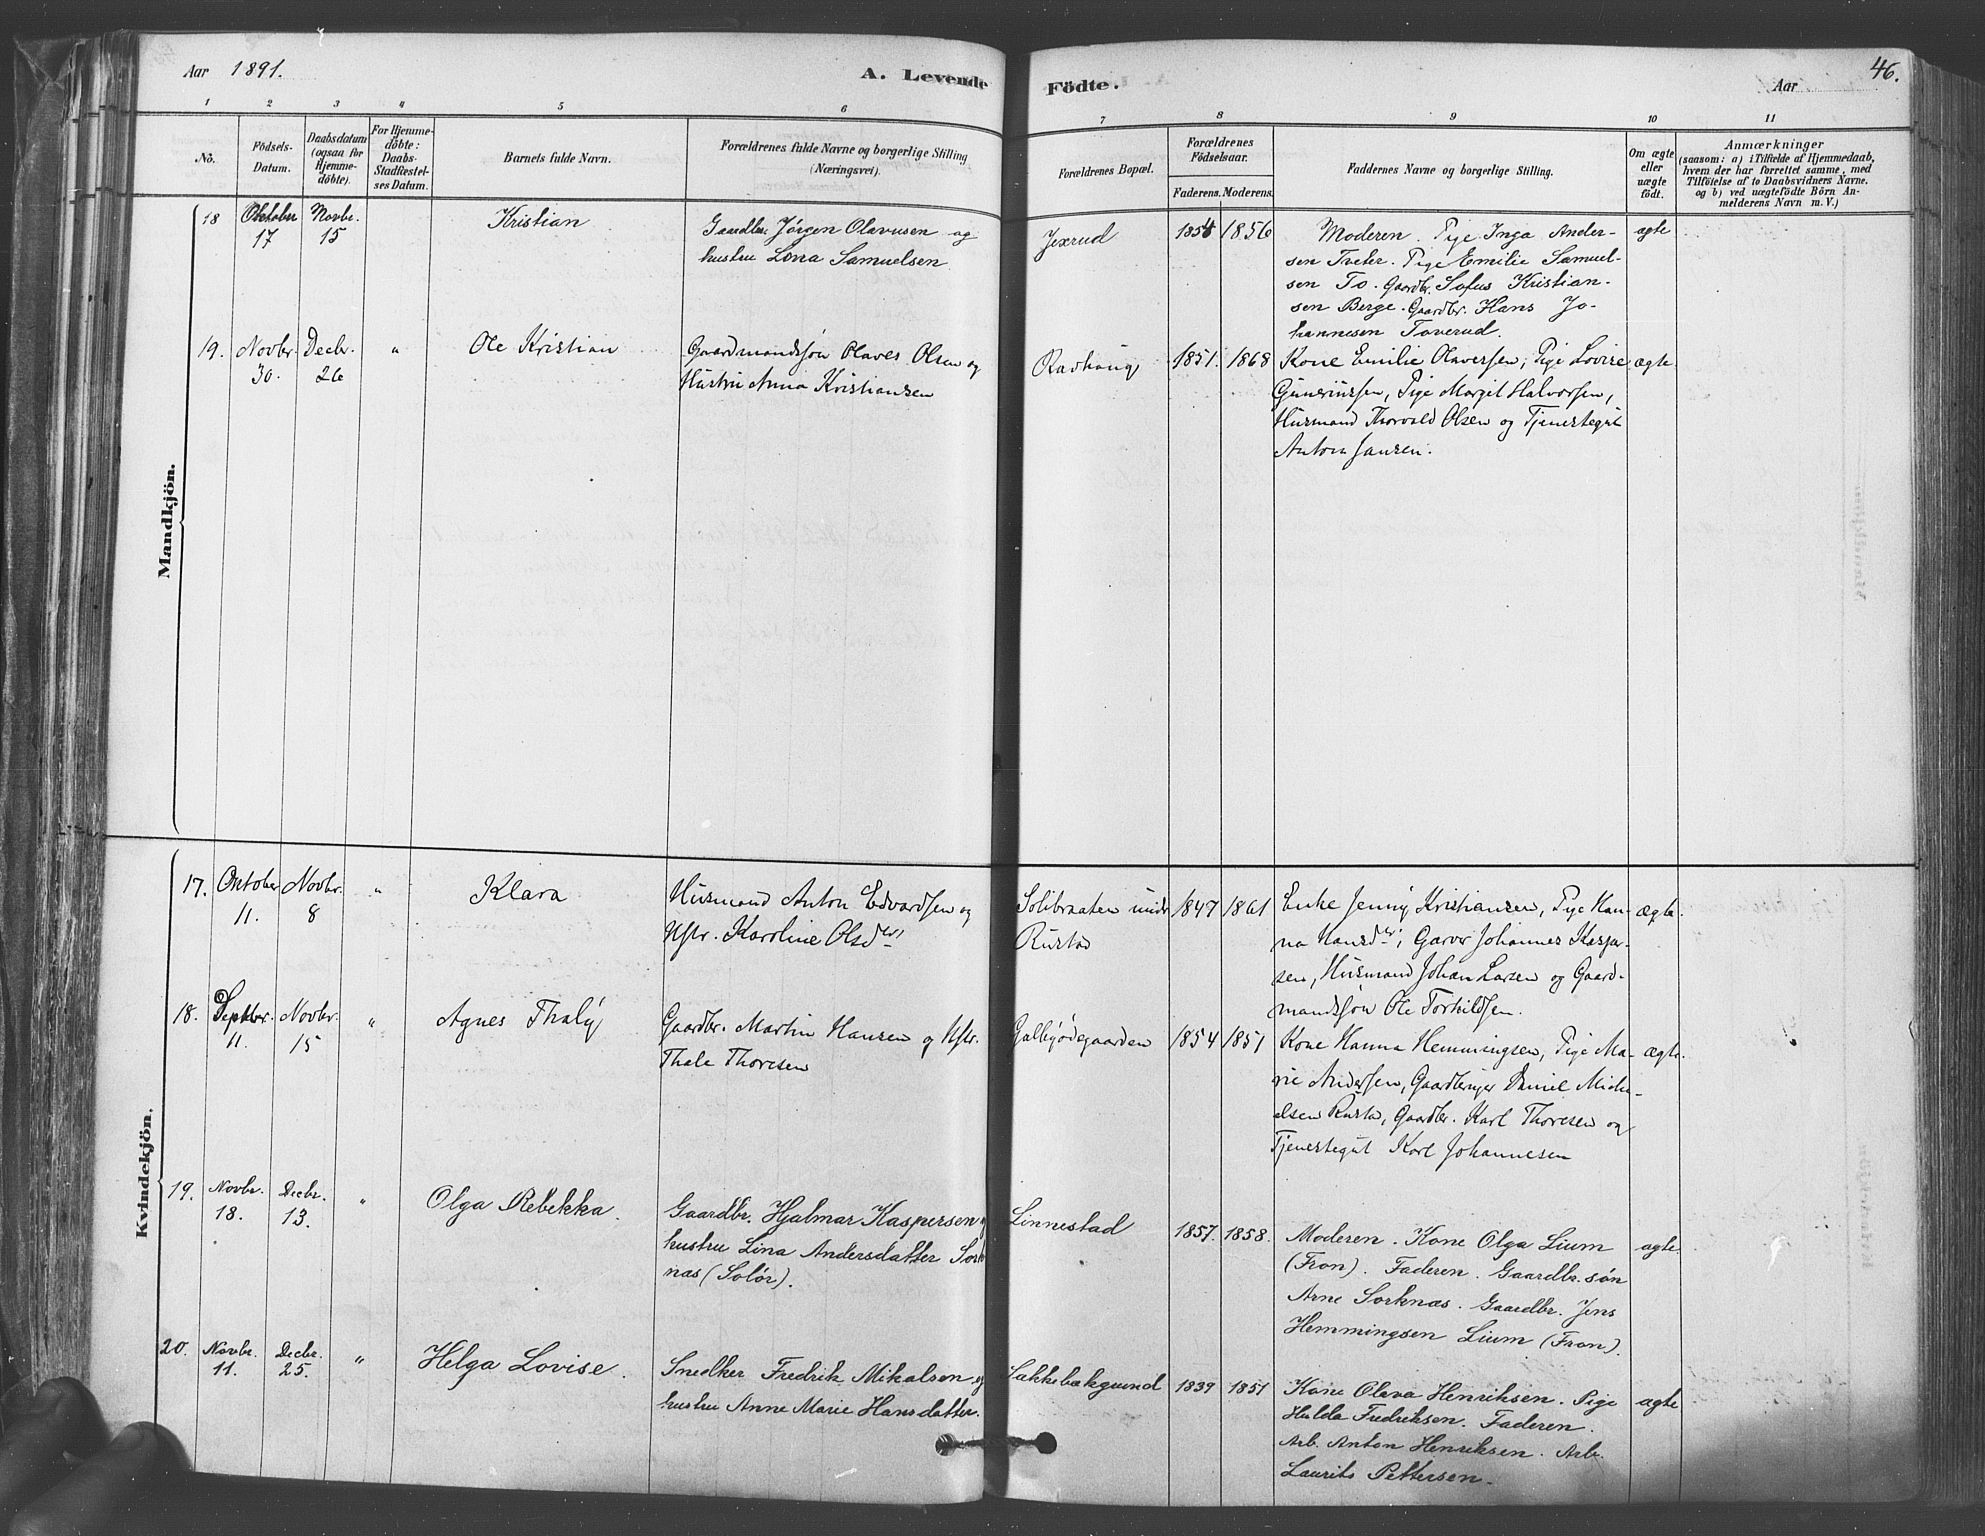 Aar 1891.
A. Levende Födte.
Aar
46.
1 2 3 4 5 6 7 8 9 10 11
No.
Födsels-
Datum.
Daabsdatum
(ogsaa for
Hjemme-
döbte).
For Hjemme-
döbte:
Daabs-
Stadfæstel-
ses Datum.
Barnets fulde Navn.
Forældrenes fulde Navne og borgerlige Stilling
(Næringsvei).
Forældrenes Bopæl.
Forældrenes
Födselsaar.
Faderens. Moderens.
Faddernes Navne og borgerlige Stilling.
Om ægte
eller
uægte
födt.
Anmærkninger
(saasom: a) i Tilfælde af Hjemmedaab,
hvem der har forrettet samme, med
Tilföielse af to Daabsvidners Navne,
og b) ved uægtefödte Börn An-
melderens Navn m. V.)
Mandkjön.
18
Oktober
17
Novbr.
15
Kristian
Gaardbr. Jørgen Olavusen og
hustru Lina Samuelsen
Jexrud
1854 1856
Moderen. Pige Inga Ander-
sen Tveter. Pige Emilie Samuel-
sen To. Gaardbr. Sofus Kristian-
sen Berge. Gaardbr. Hans Jo-
hannesen Taverud.
ægte
19.
Novbr.
30.
Decbr.
26
"
Ole Kristian
Gaardmandssøn Olaves Olsen og
Hustru Anna Kristiansen
Ravhaug
1851. 1868
Kone Emilie Olaversen, Pige Lovise
Guneriussen, Pige Margit Halvorsen,
Husmand Thorvald Olsen og Tjenestegut
Anton Jansen.
ægte
Kvindekjön.
17.
Oktober
11.
Novbr.
8
"
Klara
Husmand Anton Edvardsen og
Hstr. Karoline Olsdtr.
Solibraaten under
Rustad
1847 1861
Enke Jenny Kristiansen, Pige Han-
na Hansdtr., Garver Johannes Kasper-
sen, Husmand Johan Larsen og Gaard-
mandssøn Ole Torkildsen.
ægte.
18.
Septbr.
11.
Novbr.
15
"
Agnes Thaly
Gaardbr. Martin Hansen og Hstr.
Thale Thoresen
Galbyødegaarden
1854 1851
Kone Hanna Hemmingsen, Pige Ma-
rie Andersen, Gaardbruger Daniel Mick-
elsen Rusta, Gaardbr. Karl Thoresen og
Tjenestegut Karl Johannesen
ægte.
19.
Novbr.
18.
Decbr.
13.
"
Olga Rebekka.
Gaardbr. Hjalmar Kaspersen og
hustru Lina Andersdatter Sork-
nas (Solør).
Linnestad
1857. 1858.
Moderen. Kone Olga Lium
(Fron). Faderen. Gaardbr.søn
Arne Sorknas. Gaardbr. Jens
Hemmingsen Lium (Fron).
ægte
20.
Novbr.
11.
Decbr.
25.
"
Helga Lovise.
Snedker Fredrik Mikalsen og
hustru Anne Marie Hansdatter.
Sækkebækgrund
1839 1851
Kone Oleva Henriksen. Pige
Hulda Fredriksen. Faderen.
Arb. Anton Henriksen. Arb.
Laurits Pettersen.
ægte